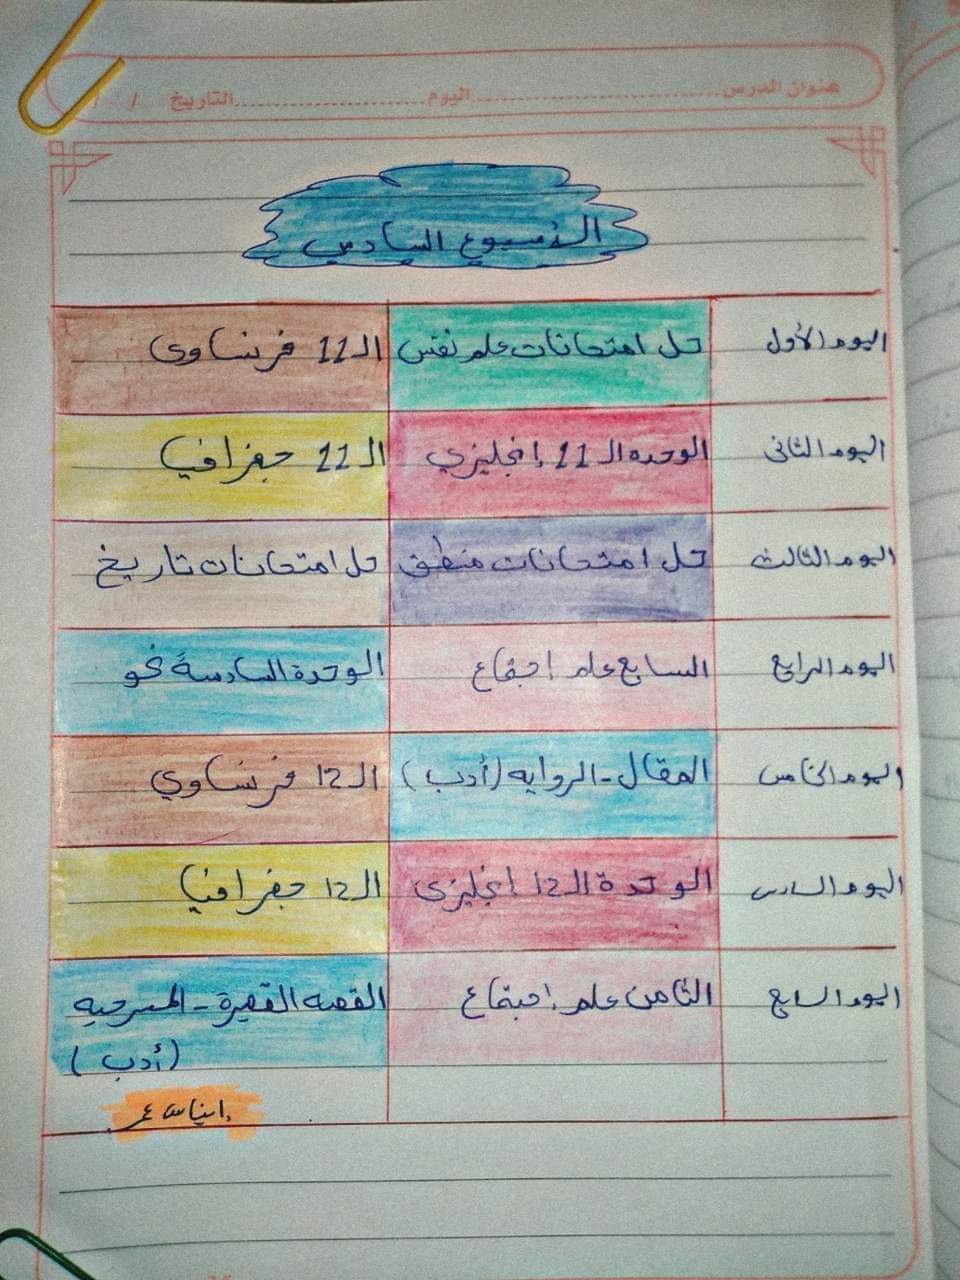 عنوان الدرس.......................اليوم......................التاريخ / /
الأسبوع السادس
اليوم الأول حل امتحانات علم نفس الـ 11 فرنساوى
اليوم الثانى الوحده الـ 11 إنجليزي الـ 11 جغرافيا
اليوم الثالث حل امتحانات منطق حل امتحانات تاريخ
اليوم الرابع السابع علم إجتماع الوحدة السادسة نحو
اليوم الخامس المقال - الروايه (أدب) الـ 12 فرنساوي
اليوم السادس الوحدة الـ 12 إنجليزى الـ 12 جغرافيا
اليوم السابع الثامن علم إجتماع القصه القصيرة - المسرحيه
(أدب)
إيناس عمر